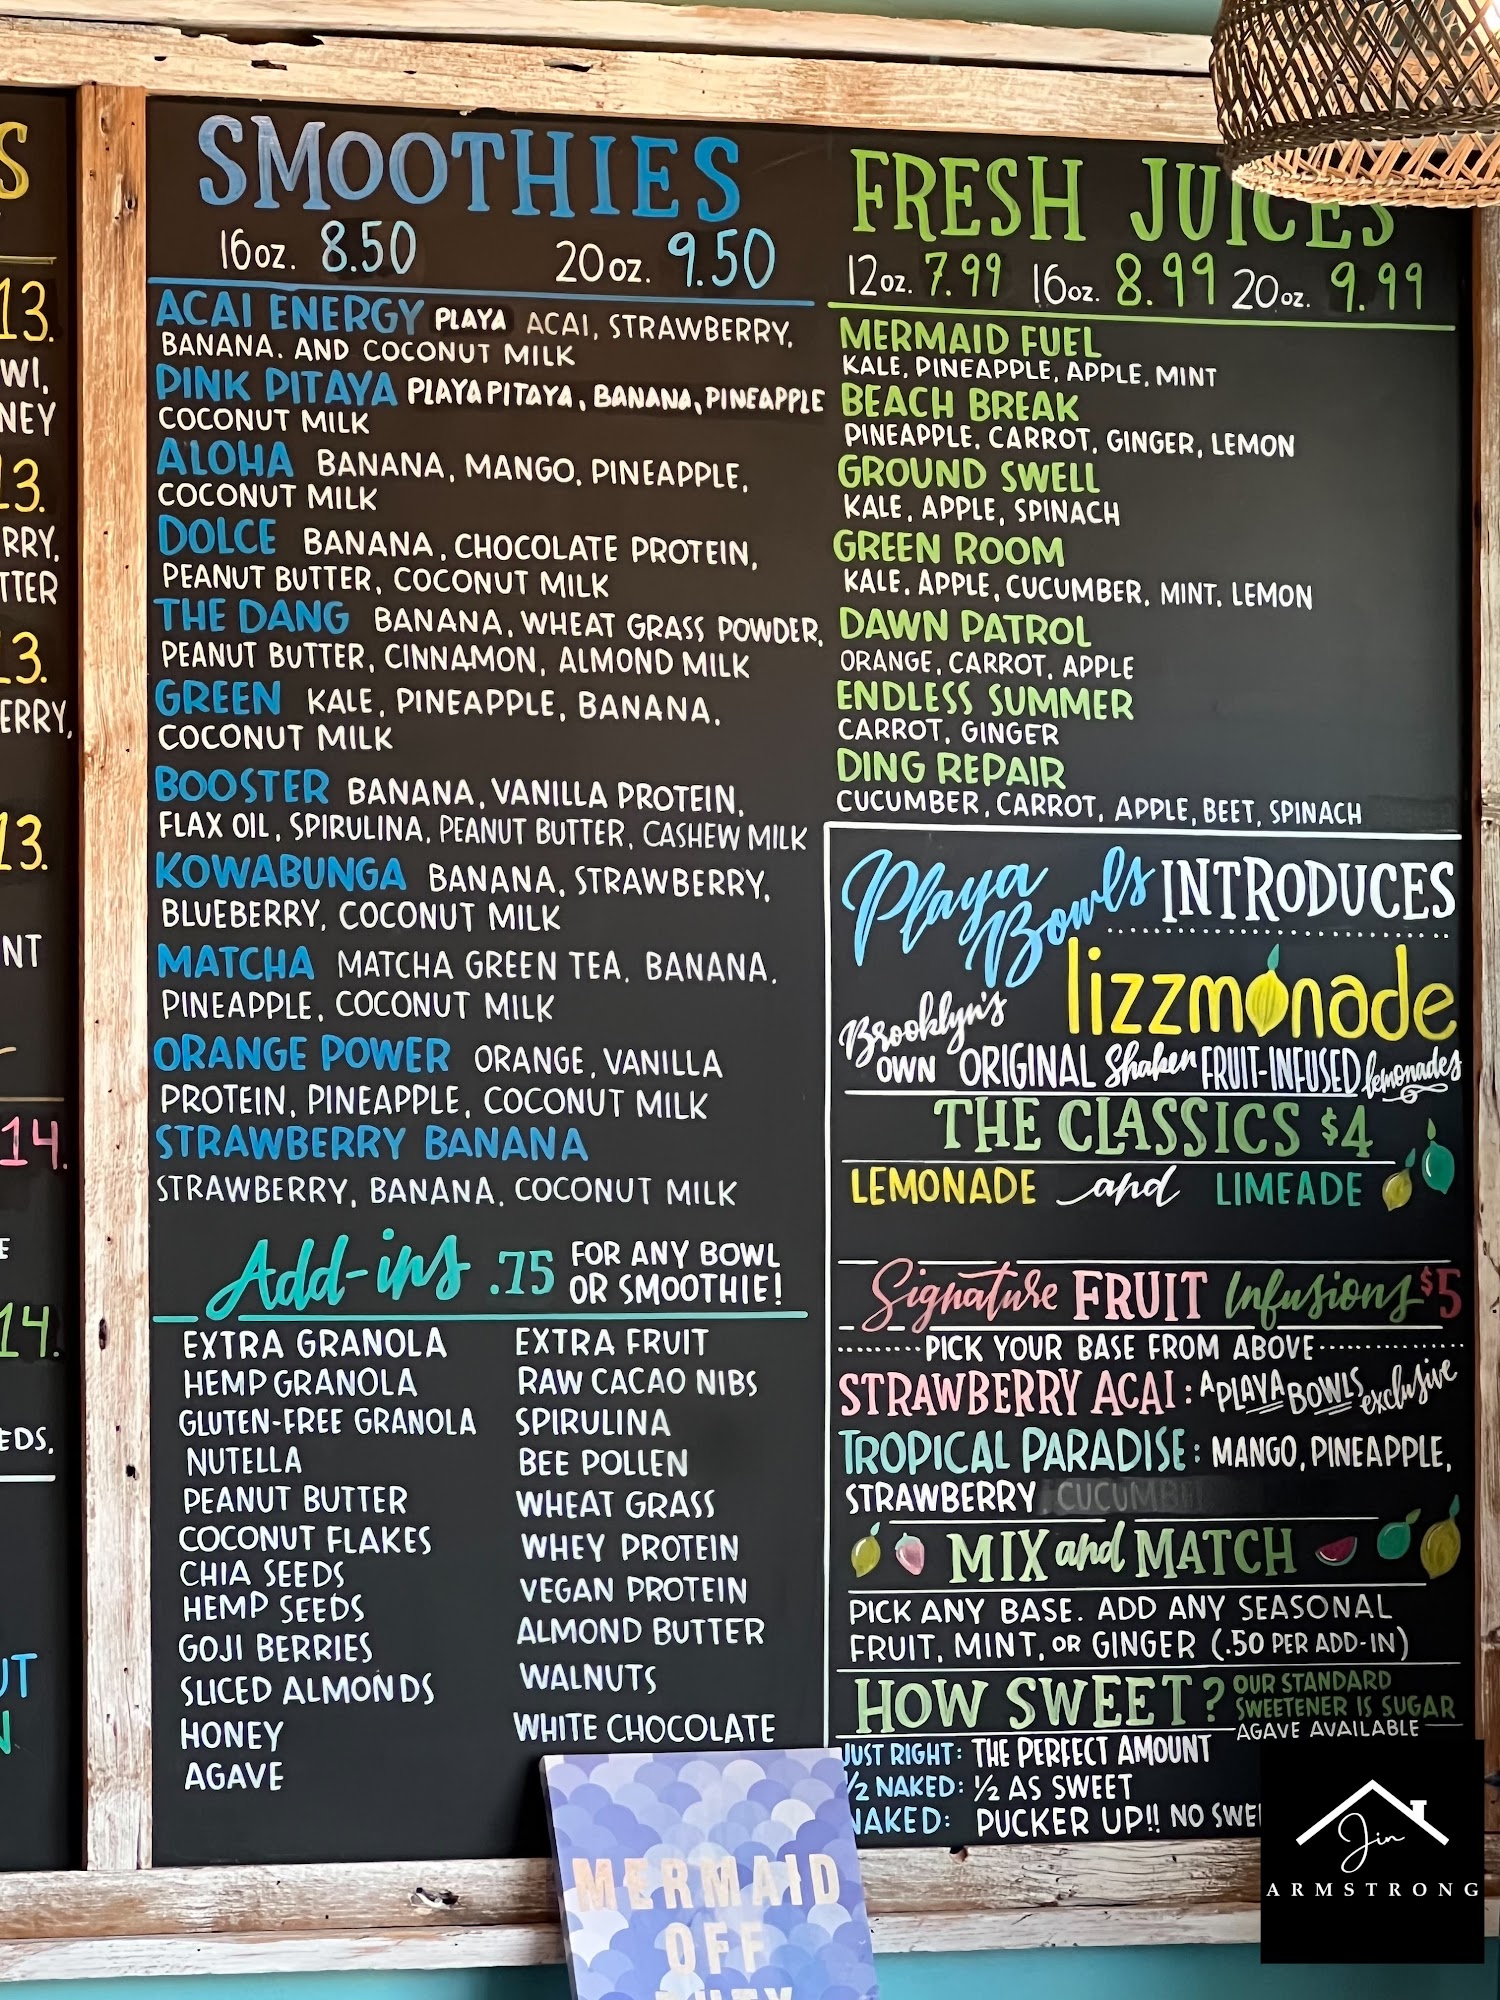 S
13.
WI,
NEY
13.
RRY,
TTER
13.
ERRY,
13.
NT
14.
E
14.
EDS,
UT
N
SMOOTHIES
16oz. 8.50 20oz. 9.50
ACAI ENERGY PLAYA ACAI, STRAWBERRY,
BANANA. AND COCONUT MILK
PINK PITAYA PLAYA PITAYA, BANANA, PINEAPPLE
COCONUT MILK
ALOHA BANANA, MANGO, PINEAPPLE,
COCONUT MILK
DOLCE BANANA, CHOCOLATE PROTEIN,
PEANUT BUTTER, COCONUT MILK
THE DANG BANANA, WHEAT GRASS POWDER,
PEANUT BUTTER, CINNAMON, ALMOND MILK
GREEN KALE, PINEAPPLE, BANANA,
COCONUT MILK
BOOSTER BANANA, VANILLA PROTEIN,
FLAX OIL, SPIRULINA, PEANUT BUTTER, CASHEW MILK
KOWABUNGA BANANA, STRAWBERRY,
BLUEBERRY, COCONUT MILK
MATCHA MATCHA GREEN TEA, BANANA,
PINEAPPLE, COCONUT MILK
ORANGE POWER ORANGE, VANILLA
PROTEIN, PINEAPPLE, COCONUT MILK
STRAWBERRY BANANA
STRAWBERRY, BANANA, COCONUT MILK
Add-ins .75 FOR ANY BOWL
OR SMOOTHIE!
EXTRA GRANOLA
HEMP GRANOLA
GLUTEN-FREE GRANOLA
NUTELLA
PEANUT BUTTER
COCONUT FLAKES
CHIA SEEDS
HEMP SEEDS
GOJI BERRIES
SLICED ALMONDS
HONEY
AGAVE
EXTRA FRUIT
RAW CACAO NIBS
SPIRULINA
BEE POLLEN
WHEAT GRASS
WHEY PROTEIN
VEGAN PROTEIN
ALMOND BUTTER
WALNUTS
WHITE CHOCOLATE
FRESH JUICES
12oz. 7.99 16oz. 8.99 20oz. 9.99
MERMAID FUEL
KALE, PINEAPPLE, APPLE, MINT
BEACH BREAK
PINEAPPLE, CARROT, GINGER, LEMON
GROUND SWELL
KALE, APPLE, SPINACH
GREEN ROOM
KALE, APPLE, CUCUMBER, MINT, LEMON
DAWN PATROL
ORANGE, CARROT, APPLE
ENDLESS SUMMER
CARROT, GINGER
DING REPAIR
CUCUMBER, CARROT, APPLE, BEET, SPINACH
Playa Bowls INTRODUCES
lizzmonade
Brooklyn's
OWN ORIGINAL Shaken FRUIT-INFUSED lemonades
THE CLASSICS $4
LEMONADE and LIMEADE
Signature FRUIT Infusions $5
PICK YOUR BASE FROM ABOVE
STRAWBERRY ACAI: A PLAYA BOWLS exclusive
TROPICAL PARADISE: MANGO, PINEAPPLE,
STRAWBERRY, CUCUMBE
MIX and MATCH
PICK ANY BASE. ADD ANY SEASONAL
FRUIT, MINT, OR GINGER (.50 PER ADD-IN)
HOW SWEET? OUR STANDARD
SWEETENER IS SUGAR
AGAVE AVAILABLE
JUST RIGHT: THE PERFECT AMOUNT
1/2 NAKED: 1/2 AS SWEET
NAKED: PUCKER UP!! NO SWE
MERMAID
OFF
DUTY
Jin
ARMSTRONG